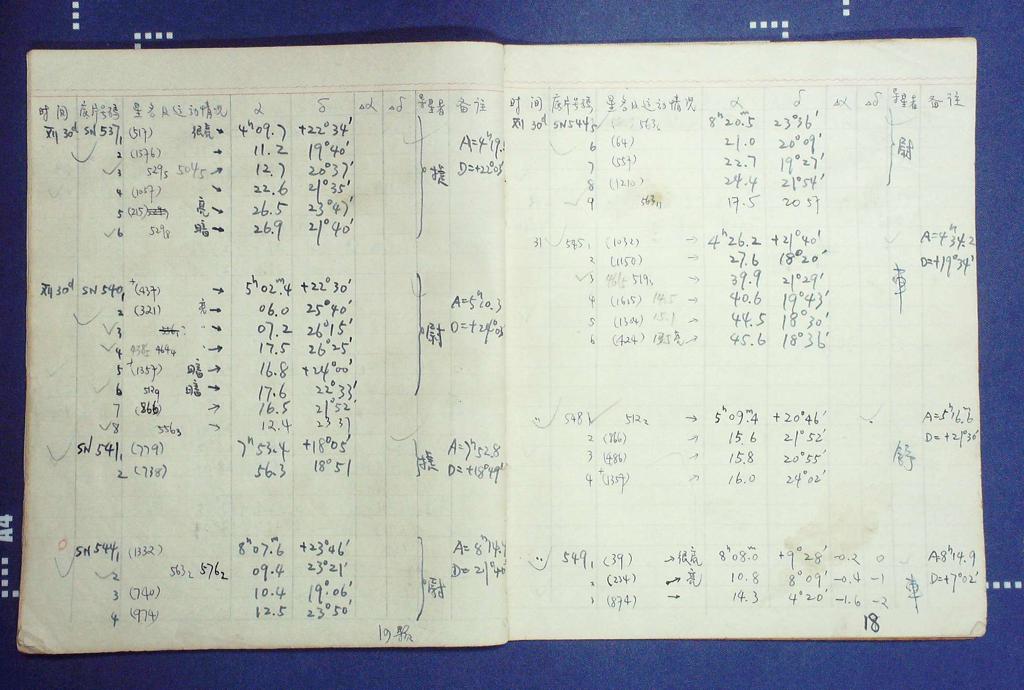 时间 底片号码 星名及运动情况 α δ Δα Δδ 寻星者 备注
XII 30d SN 537₁ (517) 很亮→ 4h09.7 +22°34'
2 (1576) → 11.2 19°40' A=4h19.
3 529₅ 504₅ 12.7 20°37' D=+22°05'
4 (1057) 22.6 21°35'
5 (215) 亮 26.5 23°47'
6 529₈ 暗→ 26.9 21°40'
XII 30d SN 540₁ +(437) → 5h02m.4 +22°30'
2 (321) 亮→ 06.0 25°40' A=5h10.3
3 → 07.2 26°15' D=+24°05'
4 464₄ → 17.5 26°25' 尉
5 +(1357) 暗→ 16.8 +24°00'
6 512₉ 暗→ 17.6 22°33'
7 (866) → 16.5 21°52'
8 556₃ 12.4 23 37
SN 541₁ (779) 7h53.4 +18°05' A=7h52.8
2 (738) 56.3 18°51 D=+18°49'
SN 544₁ (1332) 8h07m.6 +23°46' A=8h14.9
2 563₂ 576₂ 09.4 23°21' D=21°40'
3 (740) 10.4 19°06' 尉
4 (974) 12.5 23°50'
时间 底片号码 星名及运动情况 α δ Δα Δδ 寻星者 备注
XII 30d SN544₅ 8h20m.5 23°36'
6 (64) 21.0 20°09' 尉
7 (557) 22.7 19°27'
8 (1210) 24.4 21°54'
9 563₁₁ 17.5 20 57
31 545₁ (1032) → 4h26.2 +21°40' A=4h34.2
2 (1150) 27.6 18°20' D=+19°34'
3 519₁ → 39.9 21°29' 車
4 (1615) 14.5 → 40.6 19°43'
5 (1304) 15.1 → 44.5 18°30'
6 (424) → 45.6 18°36'
" 548₁ 512₂ → 5h09m.4 +20°46' A=5h16.6
2 (866) → 15.6 21°52' D=+21°30'
3 (486) → 15.8 20°55'
4 +(1357) → 16.0 24°02'
" 549₁ (39) →很亮 8h08m.0 +9°28' -0.2 0 A=8h14.9
2 (234) →亮 10.8 8°09' -0.4 -1 D=+7°02'
3 (894) → 14.3 4°20' -1.6 -2 車
19颗
18